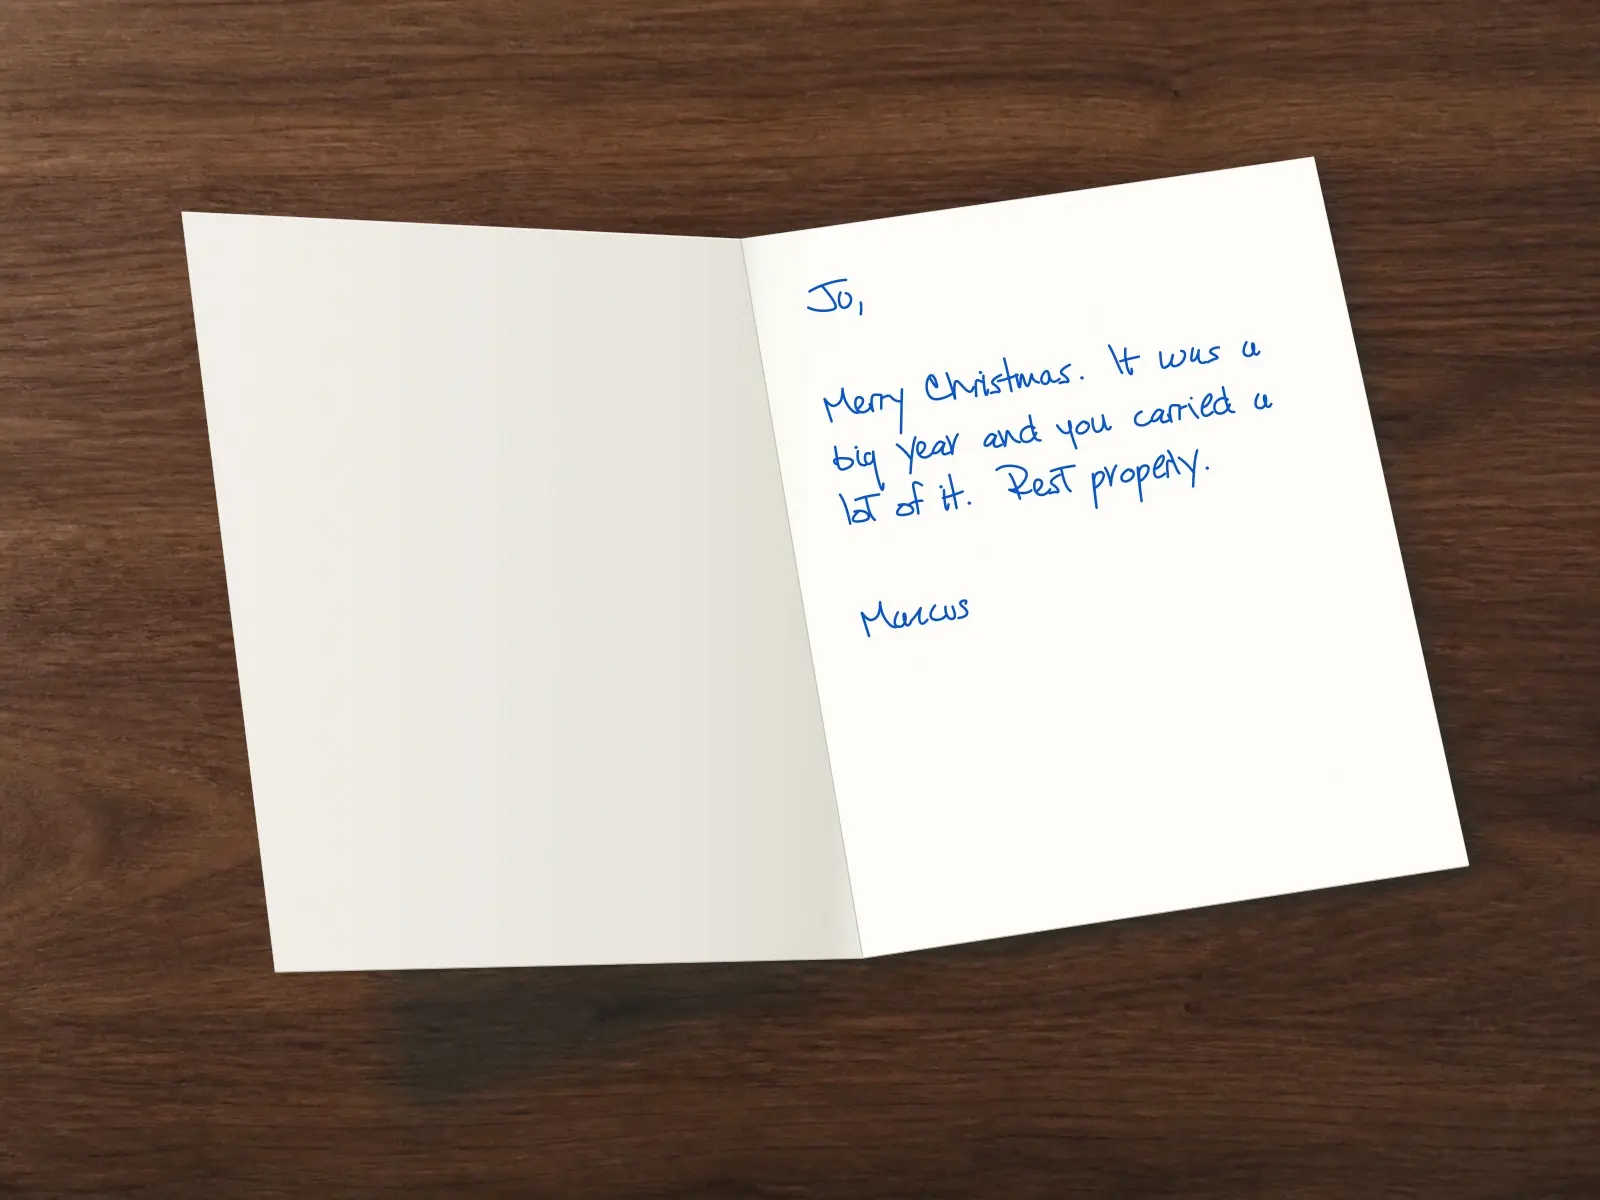 Jo,
Merry Christmas. It was a
big year and you carried a
lot of it. Rest properly.
Marcus